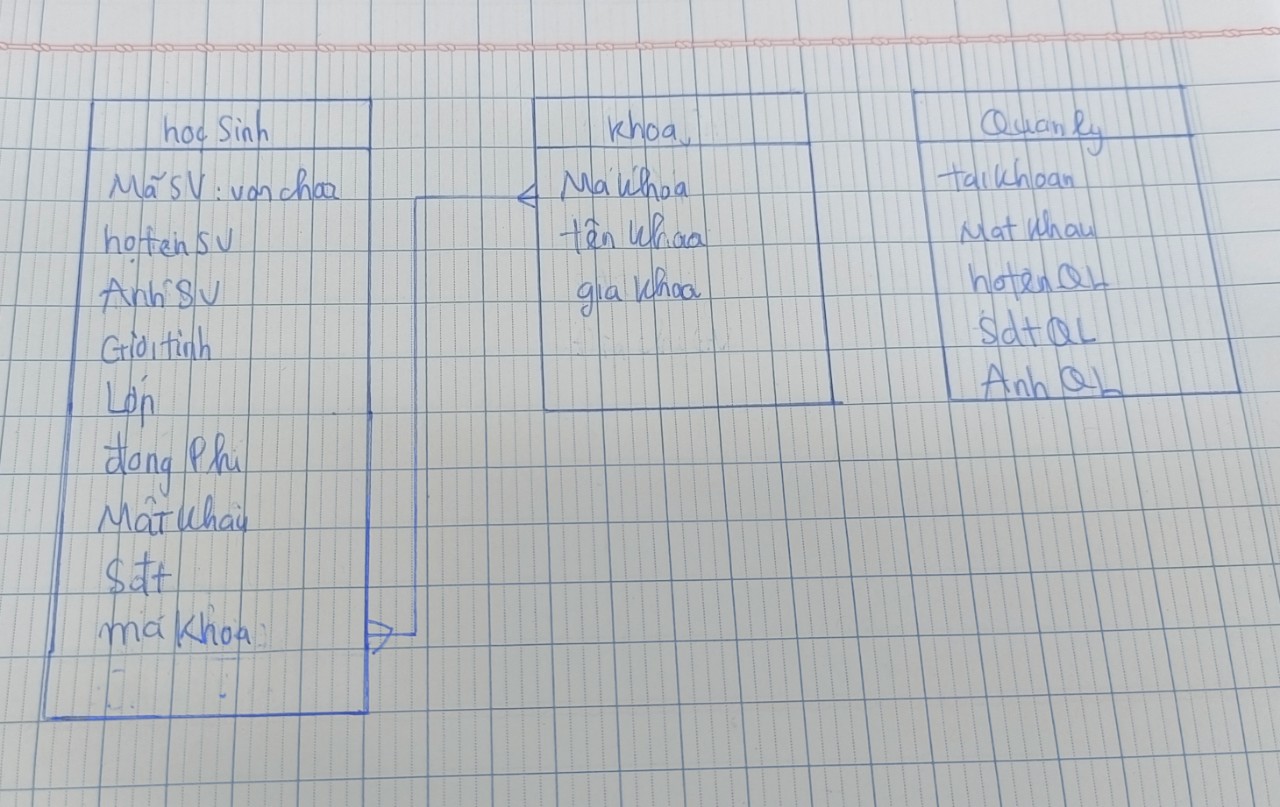 học Sinh
Mã SV : van chaa
họ tên SV
Anh SV
Giới tính
Lớp
đong Phi
Mật Khau
Sđt
ma khoa
khoa
Ma khoa
tên khoa
gia khoa
Quan ly
tai khoan
Mat khau
ho tên QL
Sdt QL
Anh QL